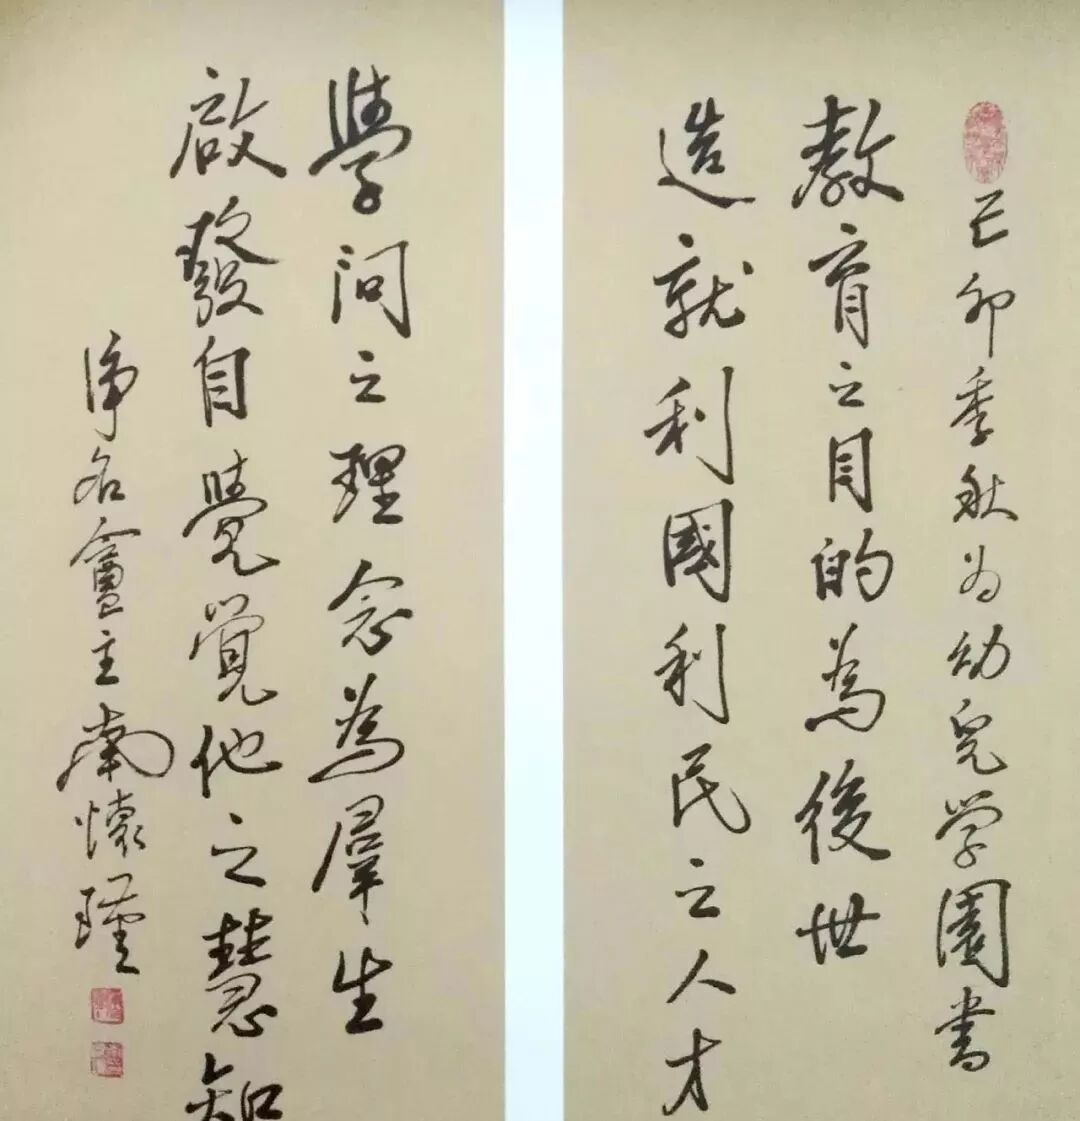 己卯季秋为幼兒学園書
教育之目的為後世
造就利國利民之人才
學問之理念為羣生
啟發自覺覺他之慧知
淨名盦主南懷瑾